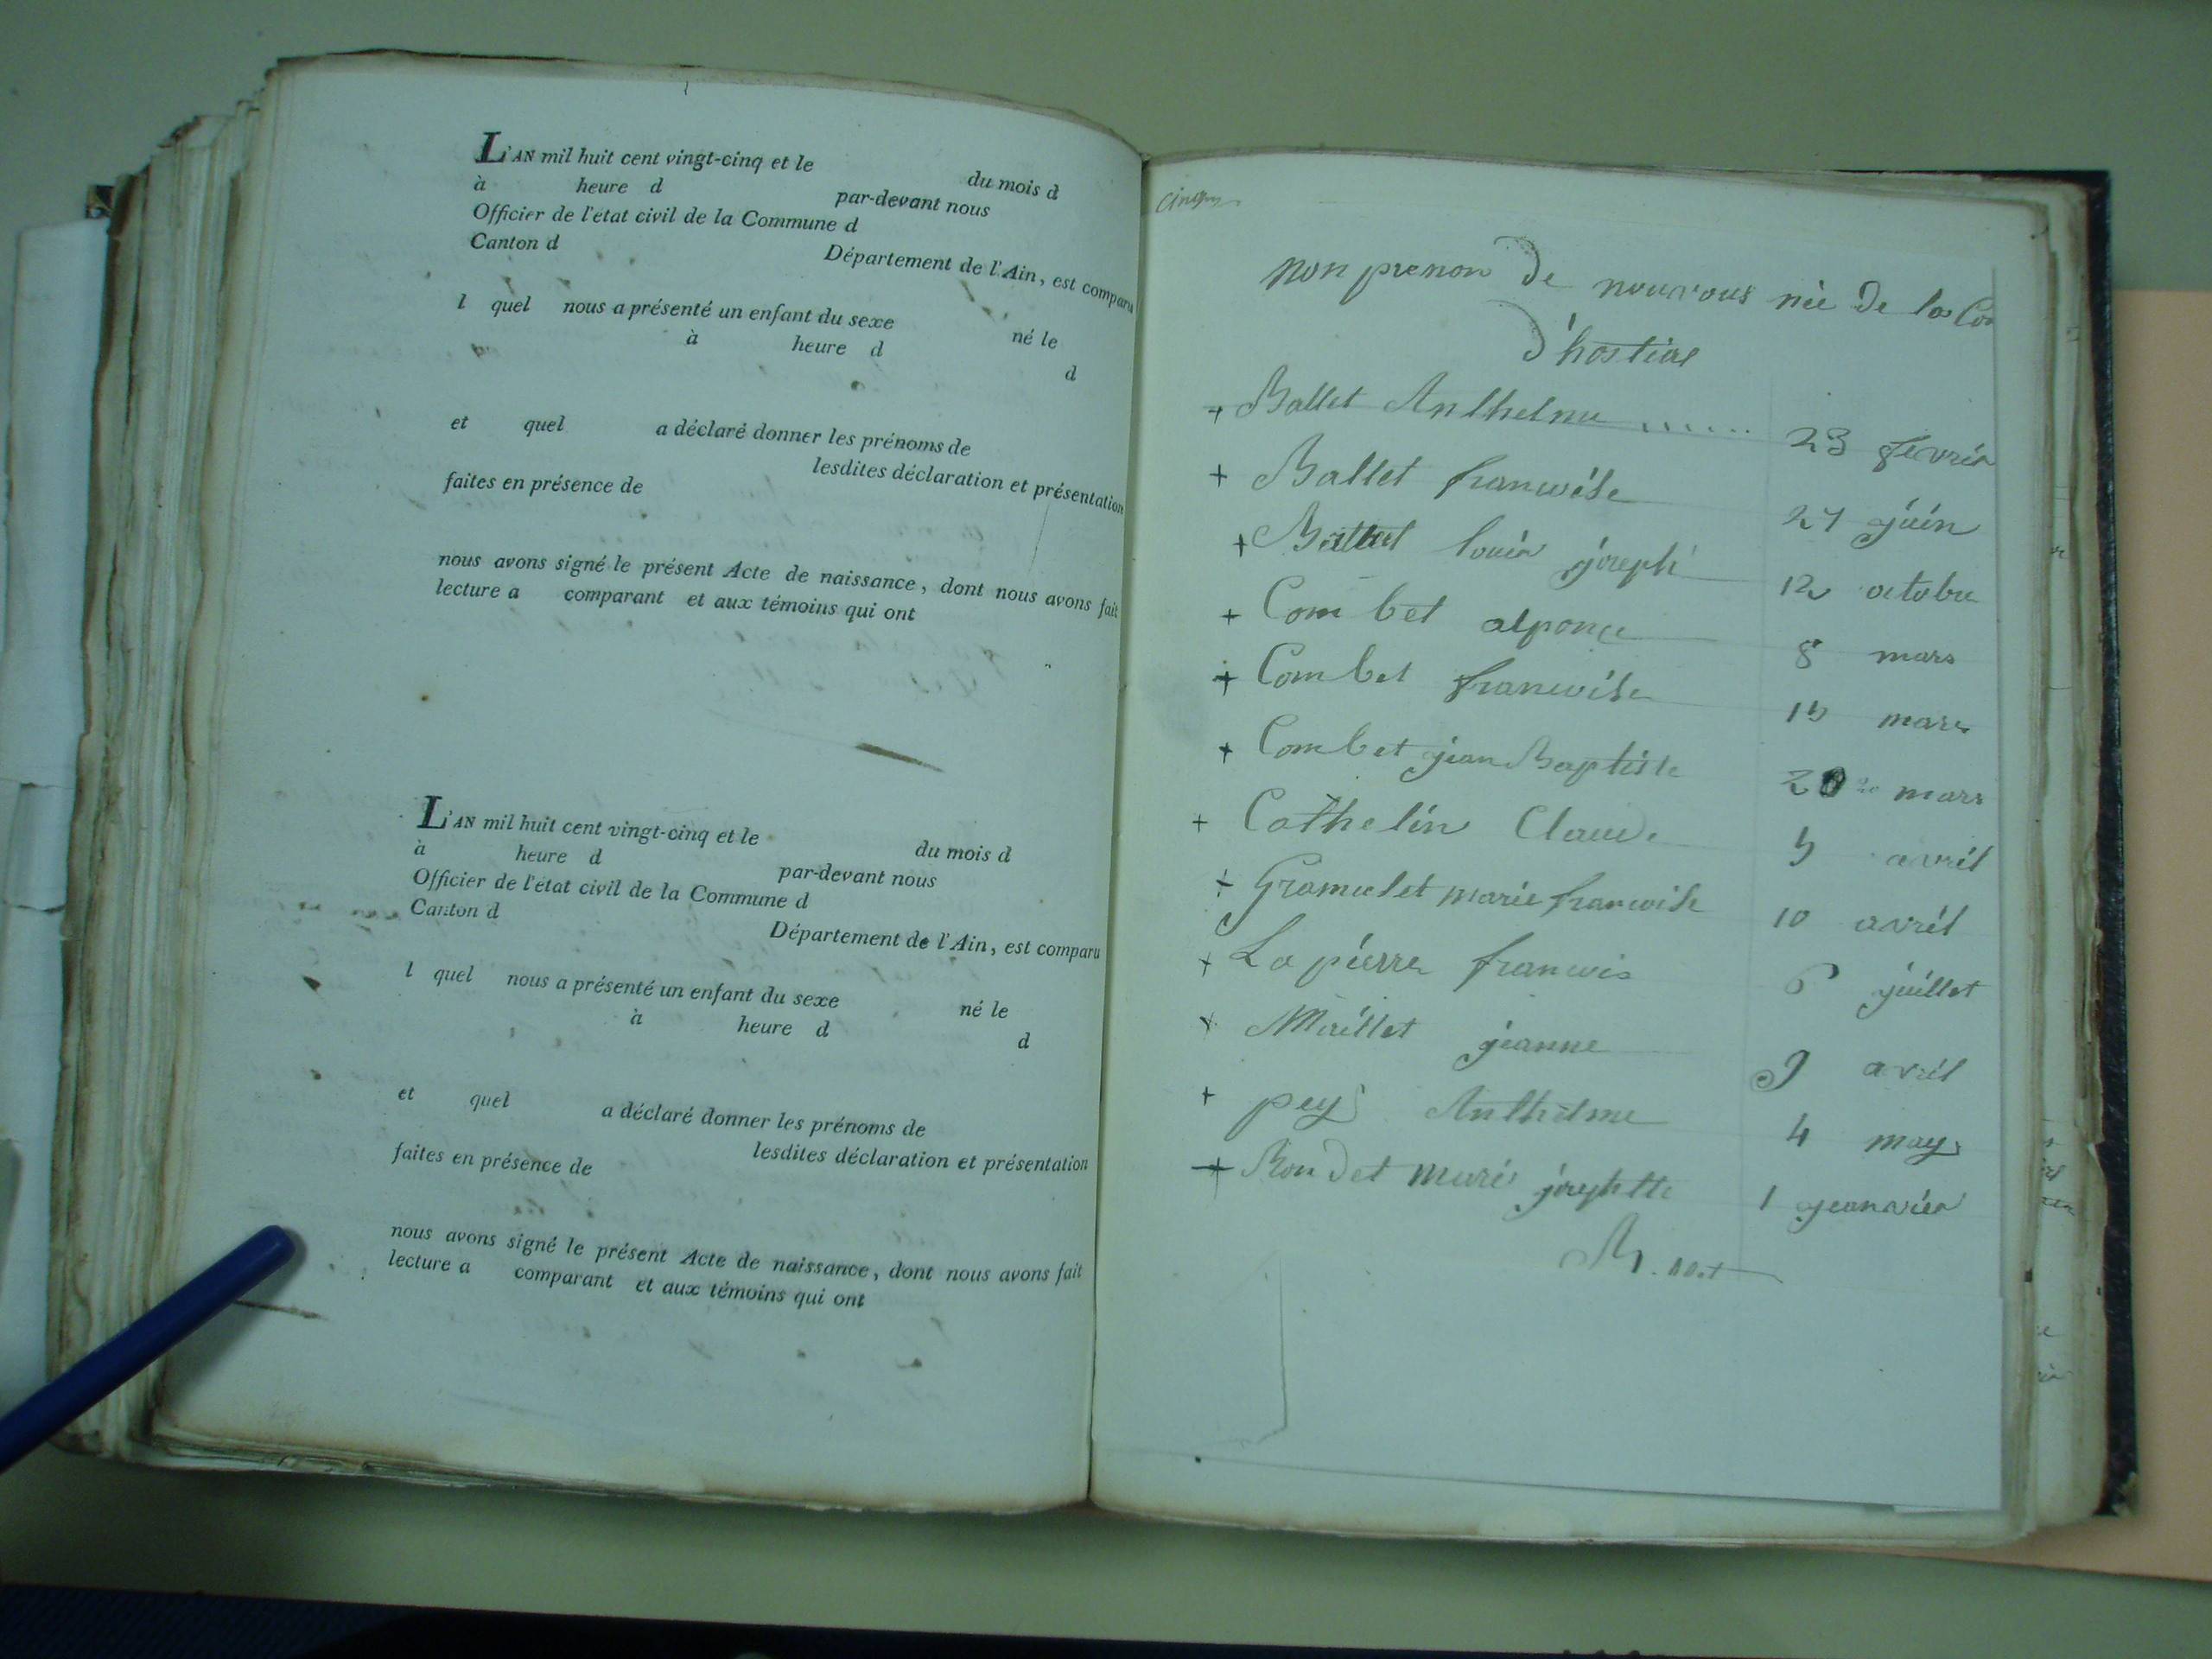 L'AN mil huit cent vingt-cinq et le du mois d
à heure d par-devant nous
Officier de l'état civil de la Commune d
Canton d Département de l'Ain, est comparu
l quel nous a présenté un enfant du sexe né le
à heure d
d
et quel a déclaré donner les prénoms de
lesdites déclaration et présentation
faites en présence de
nous avons signé le présent Acte de naissance, dont nous avons fait
lecture a comparant et aux témoins qui ont
L'AN mil huit cent vingt-cinq et le du mois d
à heure d par-devant nous
Officier de l'état civil de la Commune d
Canton d Département de l'Ain, est comparu
l quel nous a présenté un enfant du sexe né le
à heure d
d
et quel a déclaré donner les prénoms de
lesdites déclaration et présentation
faites en présence de
nous avons signé le présent Acte de naissance, dont nous avons fait
lecture a comparant et aux témoins qui ont
non prenon De nouvous née De la Co
D'hostias
+ Ballet Anthelme ...... 23 fevrier
+ Ballet francoise 27 juin
+ Ballet louis joseph 12 octobre
+ Combet alponce 8 mars
+ Combet francoise 15 mars
+ Combet jean Baptiste 20 20 mars
+ Cathelin Claude 5 avril
+ Gramelet marie francoise 10 avril
+ La pierre francois 6 juillet
+ Miellet jeanne 9 avril
+ pey Anthelme 4 may
+ Rondet marie josephtte 1 jeanvier